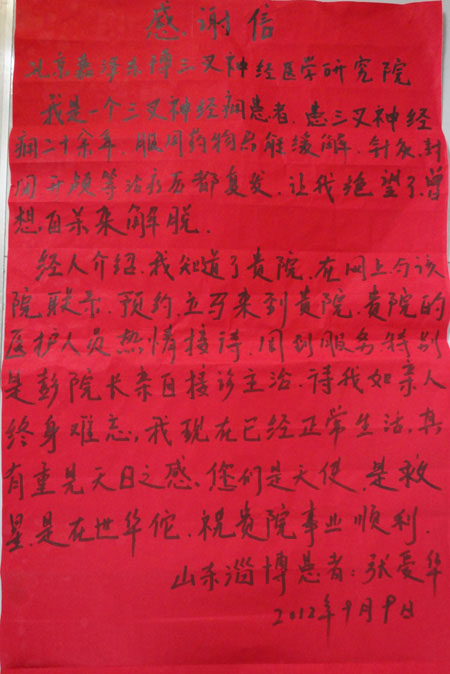 感谢信
北京嘉泽东博三叉神经医学研究院
我是一个三叉神经痛患者.患三叉神经
痛二十余年.服用药物只能缓解.针灸.封
闭开颅等治疗后都复发.让我绝望了.曾
想自杀来解脱.
经人介绍.我知道了贵院.在网上与该
院联系.预约.立马来到贵院.贵院的
医护人员热情接待.周到服务特别
是彭院长亲自接诊主治.待我如亲人
终身难忘.我现在已经正常生活.真
有重见天日之感.您们是天使.是救
星.是在世华佗.祝贵院事业顺利.
山东淄博患者:张爱华
2012年9月9日